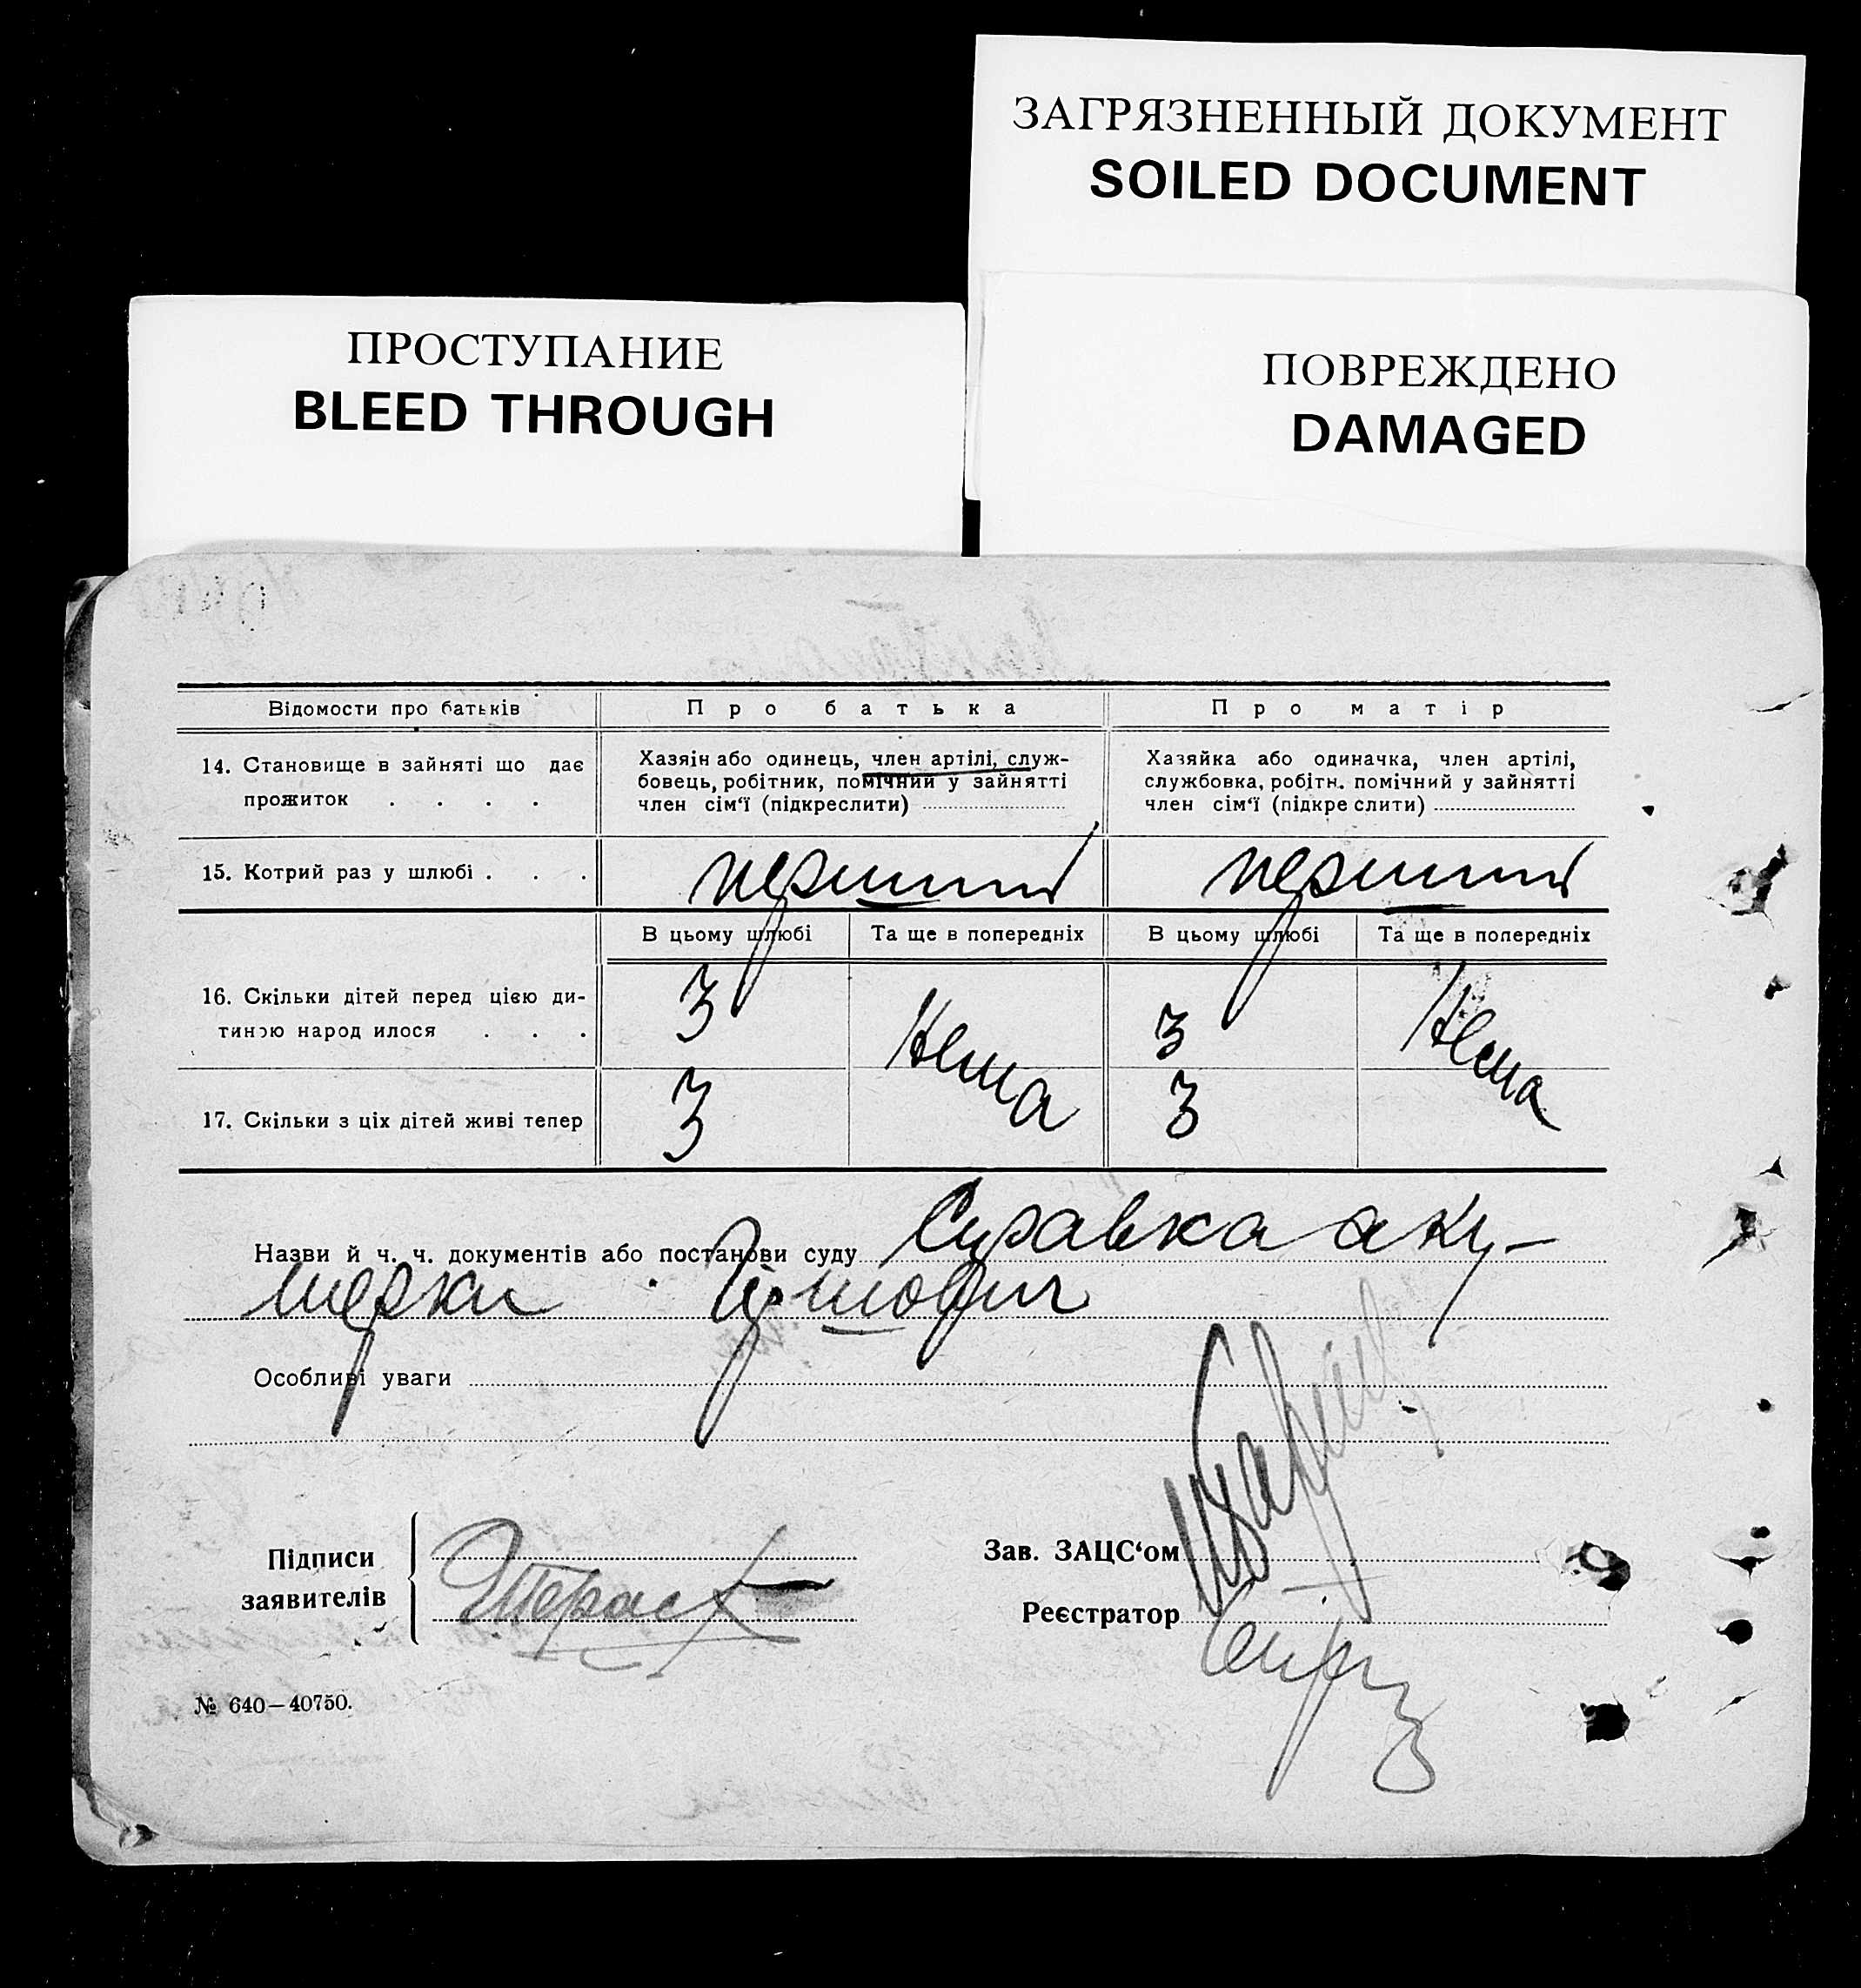 ЗАГРЯЗНЕННЫЙ ДОКУМЕНТ
SOILED DOCUMENT
ПРОСТУПАНИЕ
BLEED THROUGH
ПОВРЕЖДЕНО
DAMAGED
Відомости про батьків
Про батька
Про матір
14. Становище в зайняті що дає
прожиток . . . .
Хазяін або одинець, член артілі, служ-
бовець, робітник, помічний у зайнятті
член сім‘ї (підкреслити)
Хазяйка або одиначка, член артілі,
службовка, робітн. помічний у зайнятті
член сім‘ї (підкреслити)
15. Котрий раз у шлюбі . . .
перший
перший
В цьому шлюбі
Та ще в попередніх
В цьому шлюбі
Та ще в попередніх
16. Скільки дітей перед цією ди-
тиною народилося . . .
3
Нема
3
Нема
17. Скільки з ціх дітей живі тепер
3
3
Назви й ч. ч. документів або постанови суду Справка аку-
шерки
Особливі уваги
Підписи
заявителів
Зав. ЗАЦС‘ом
Реєстратор
№ 640—40750.